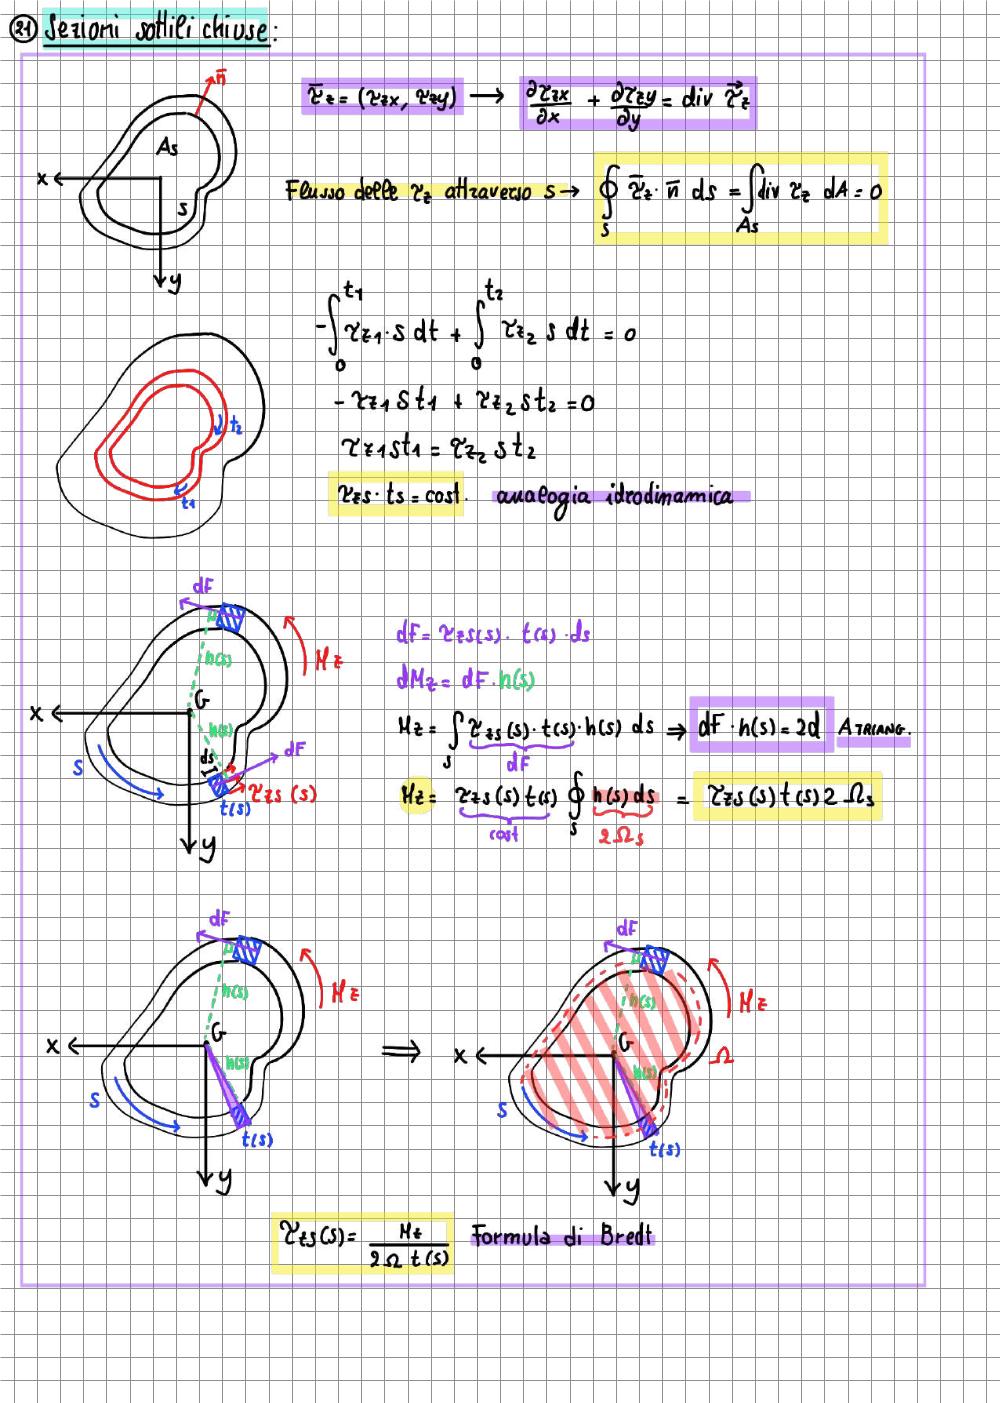 21 Sezioni sottili chiuse:
n̄
τ̄z = (τzx, τzy) → ∂τzx/∂x + ∂τzy/∂y = div τ⃗z
As
x
s
y
Flusso delle τz attraverso s → ∮s τ̄z · n̄ ds = ∫As div τz dA = 0
-∫₀^t1 τz1 · s dt + ∫₀^t2 τz2 s dt = 0
- τz1 s t1 + τz2 s t2 = 0
τz1 s t1 = τz2 s t2
t2
t1
τzs · ts = cost. analogia idrodinamica
dF
μ
h(s)
Mz
G
x
h(s)
ds
dF
s
τzs (s)
t(s)
y
dF = τzs(s) · t(s) · ds
dMz = dF · h(s)
Mz = ∫s τzs (s) · t(s) · h(s) ds ⇒ dF · h(s) = 2d A TRIANG.
dF
Mz = τzs (s) t(s) ∮s h(s) ds = τzs (s) t(s) 2 Ωs
cost 2Ωs
dF
μ
h(s)
Mz
G
x
h(s)
s
t(s)
y
⇒
dF
μ
h(s)
Mz
G
x
Ω
h(s)
s
t(s)
y
τzs (s) = Mz / 2Ω t(s) Formula di Bredt